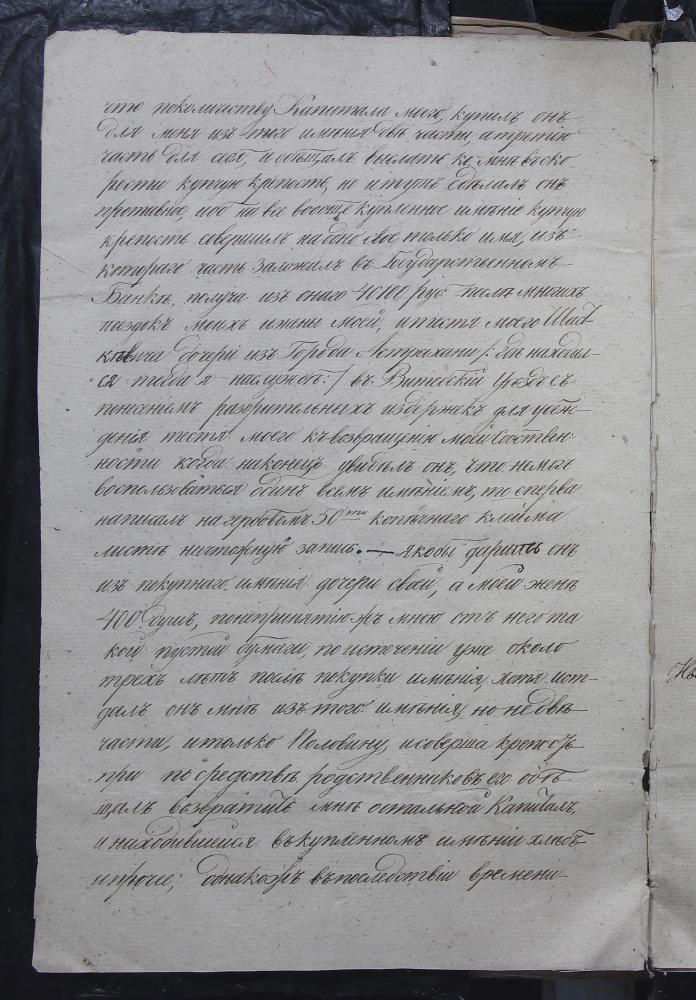 что поколичеству Капитала моего, купилъ онъ
для меня изъ того имѣнія двѣ части, а третію
часть для себя, и обѣщалъ выслать ко мнѣ въско
рости купчую крѣпость, но и тутъ сдѣлалъ онъ
противное, ибо на все вообще купленное имѣніе купчую
крепость совершилъ на одно свое только имя, изъ
котораго часть заложилъ въ Государственномъ
Банкѣ, получа изъ онаго руб. послѣ многихъ
поездокъ моихъ и жены моей, и тестя моего
дочери изъ Города Астрахани /: где находил-
ся тогда я наслужбѣ :/ въ Витебскій уѣздъ съ
понесеніемъ разорительныхъ издержекъ для убѣж-
денія тестя моего къ возвращенію моей собствен-
ности когда наконецъ увидѣлъ онъ, что немогъ
воспользоваться одинъ всемъ имѣніемъ, то сперва
написалъ на гербовомъ 50ти копѣечнаго клейма
листѣ ничтожную запись. — якобы даритъ онъ
изъ покупнаго имѣнія дочери своей, а моей женѣ
400 душъ, понепринятію жъ мною отъ него та
кой пустой бумаги, по истеченіи уже около
трехъ лѣтъ послѣ покупки имѣнія, хотя и от-
далъ онъ мнѣ изъ того имѣнія, но не двѣ
части, и только Половину, и соверша крепость
при посредствѣ родственниковъ его обѣ
щалъ возвратить мнѣ остальной Капиталъ,
и находившейся въ купленномъ имѣніи хлебъ
и прочее; однакожъ въпоследствіи времени